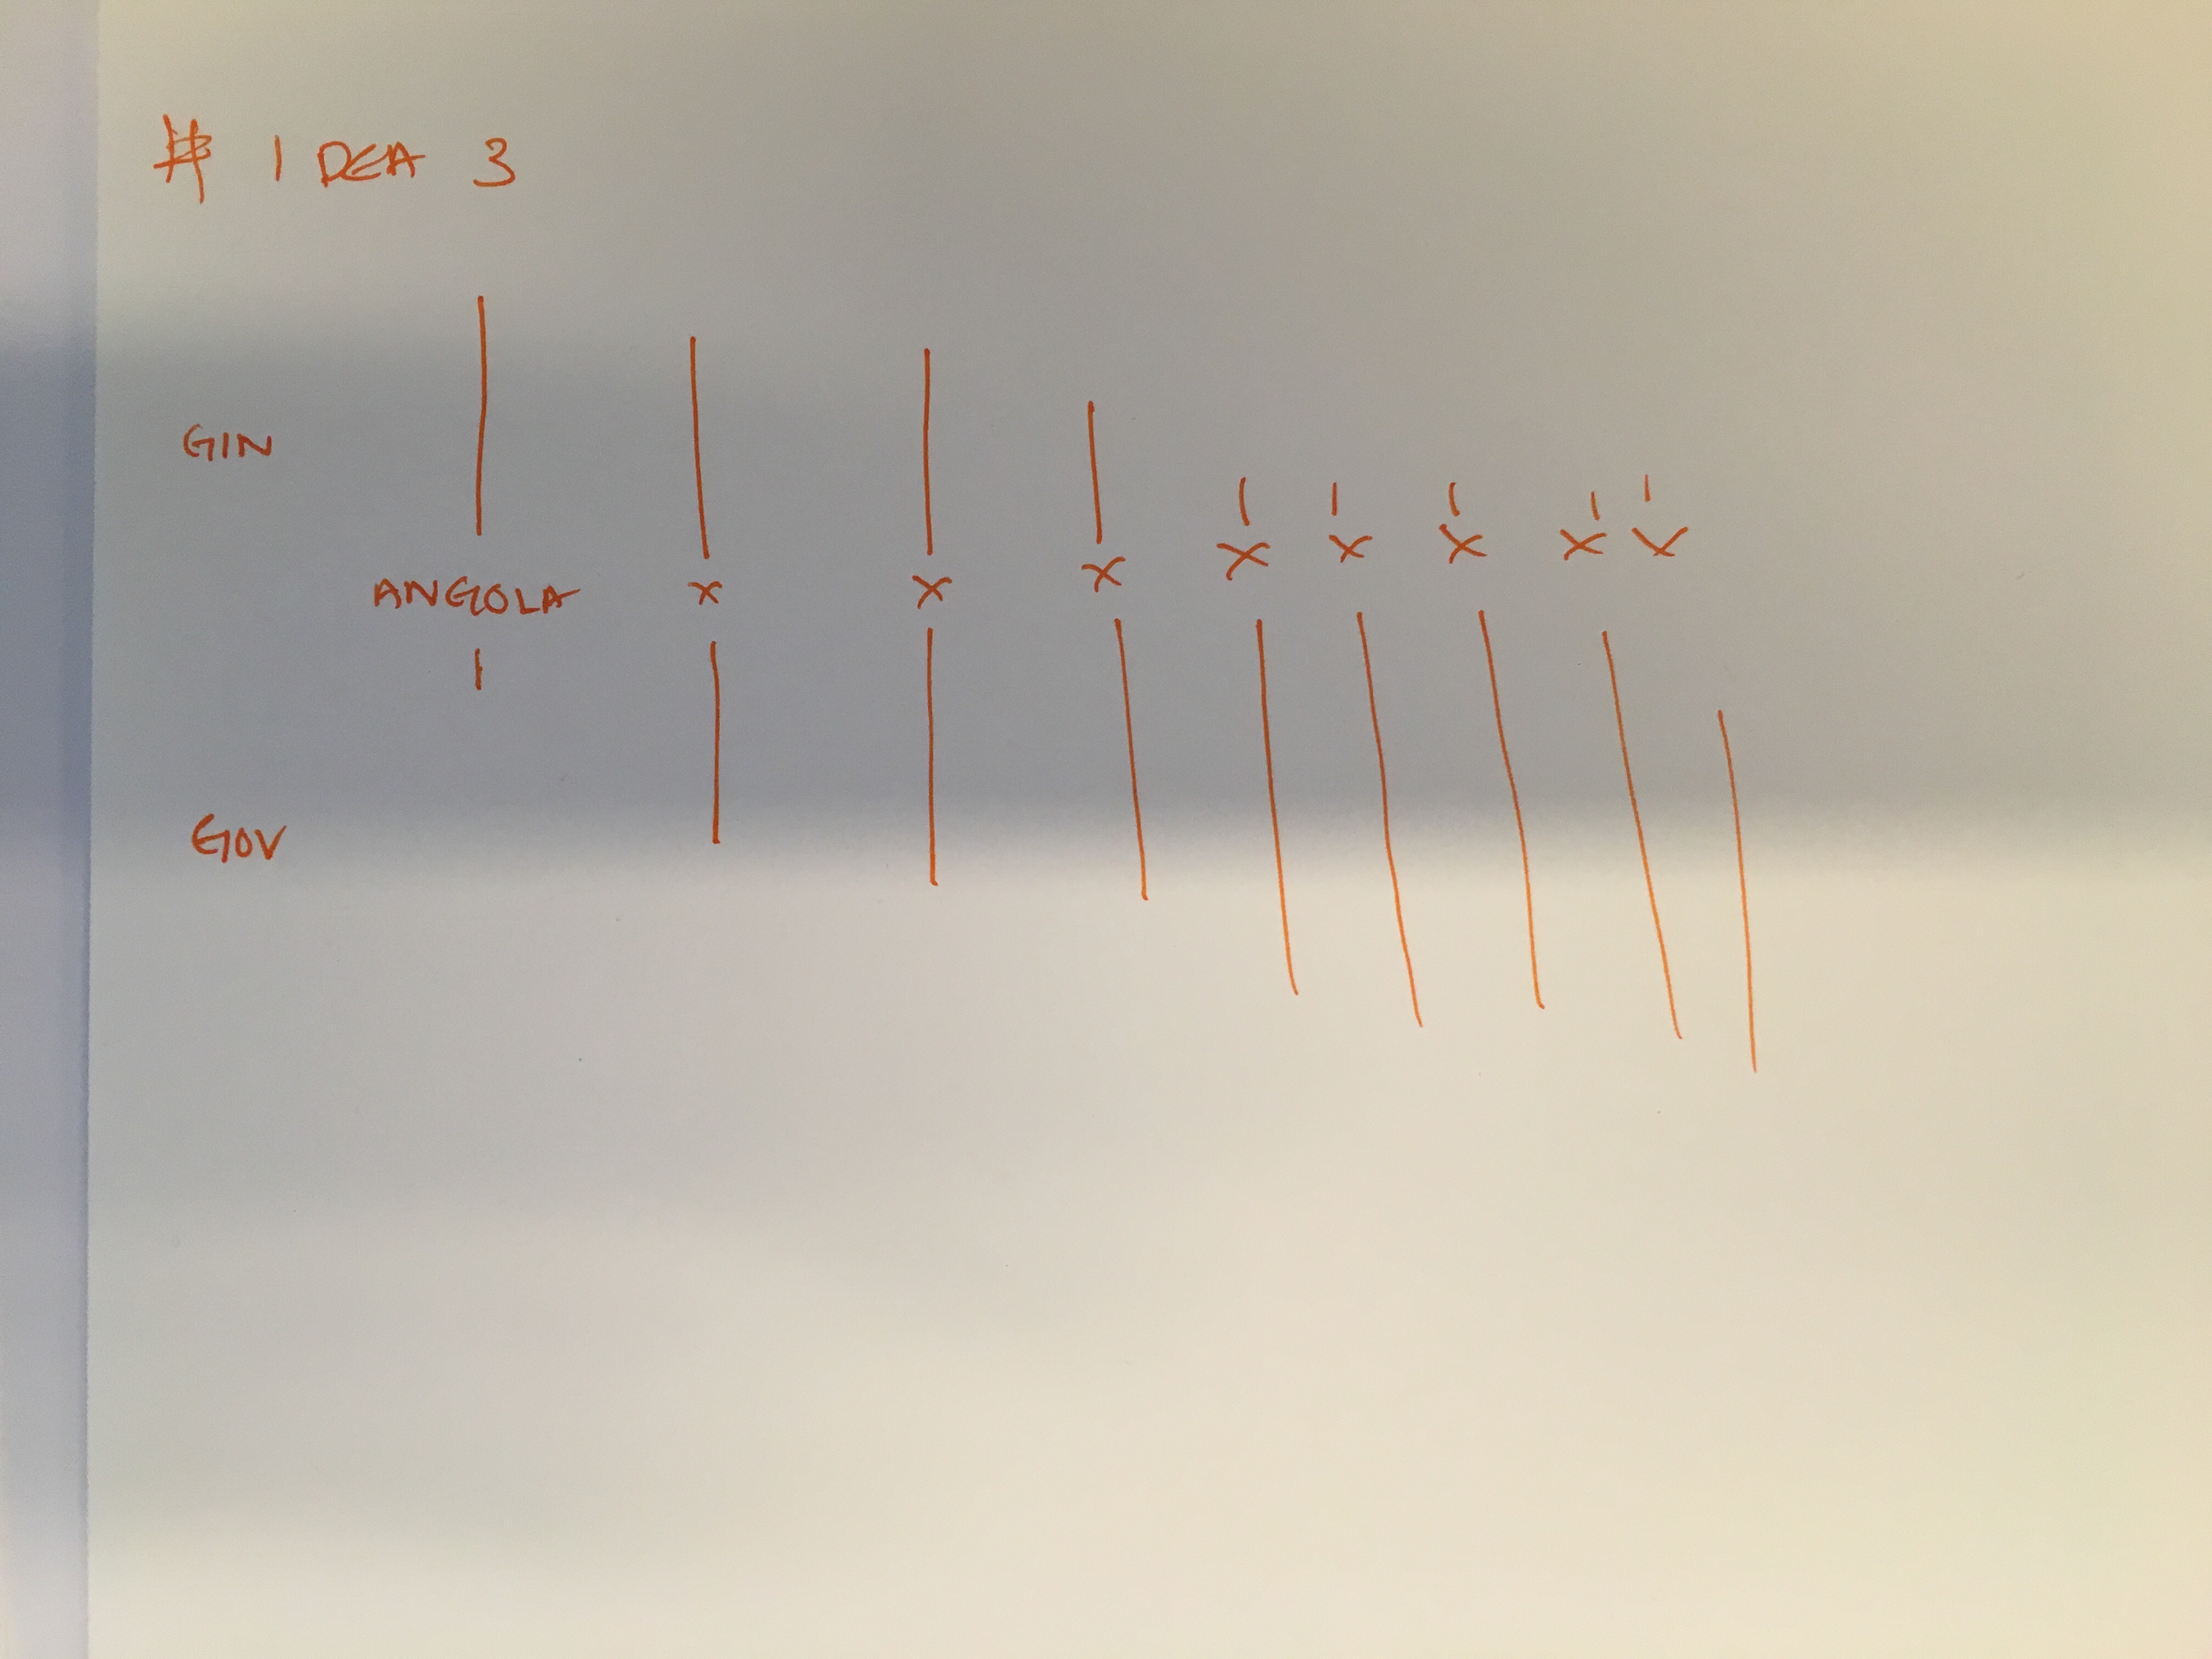 # IDEA 3
GIN
ANGOLA x x x x x x x x
GOV